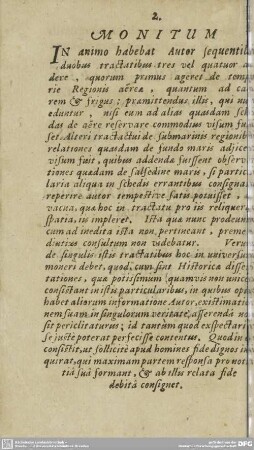 2.
MONITUM
IN animo habebat Autor sequentib
duobus tractatibus tres vel quatuor a
dere, quorum primus ageret de tempe
rie Regionis aëreæ, quantum ad ca
rem & frigus: præmittendus illis, qui nu
eduntur, nisi eum ad alias quasdam sche
das de aëre reservare commodius visum fu
set. Alteri tractatui de submarinis regionib
relationes quasdam de fundo maris adjice
visum fuit, quibus addenda fuissent observ
tiones quædam de salsedine maris, si partic
laria aliqua in schedis errantibus consigna
reperire autor tempestive satis potuisset,
vacua, quæ hoc in tractatu pro iis reliquer
spatia, iis impleret. Ista quæ nunc prodeunt
cum ad inedita ista non pertineant, preme
diutius consultum non videbatur. Verum
de singulis istis tractatibus hoc in universum
moneri debet, quod, cum sint Historicæ disse
tationes, quæ potissimum (quamvis non unice
constant in istis particularibus, in quibus ope
habet aliorum informatione Autor, existimatio
nem suam in singulorum veritate asserenda no
sit periclitaturus; id tantum quod exspectari
se juste poterat perfecisse contentus. Quod in e
consistit, ut sollicite apud homines fide dignos in
quirat, qui maximam partem responsa pro noti
tiâ suâ formant, & ab illis relata fide
debitâ consignet.